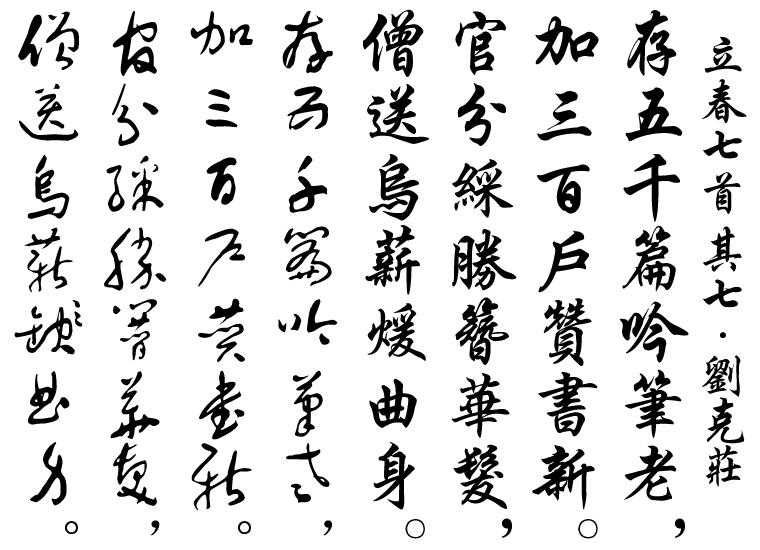 立春七首其七·劉克莊
存五千篇吟筆老，
加三百戶贊書新。
官分綵勝簪華髮，
僧送烏薪煖曲身。
存五千篇吟筆老，
加三百戶贊書新。
官分綵勝簪華髮，
僧送烏薪煖曲身。